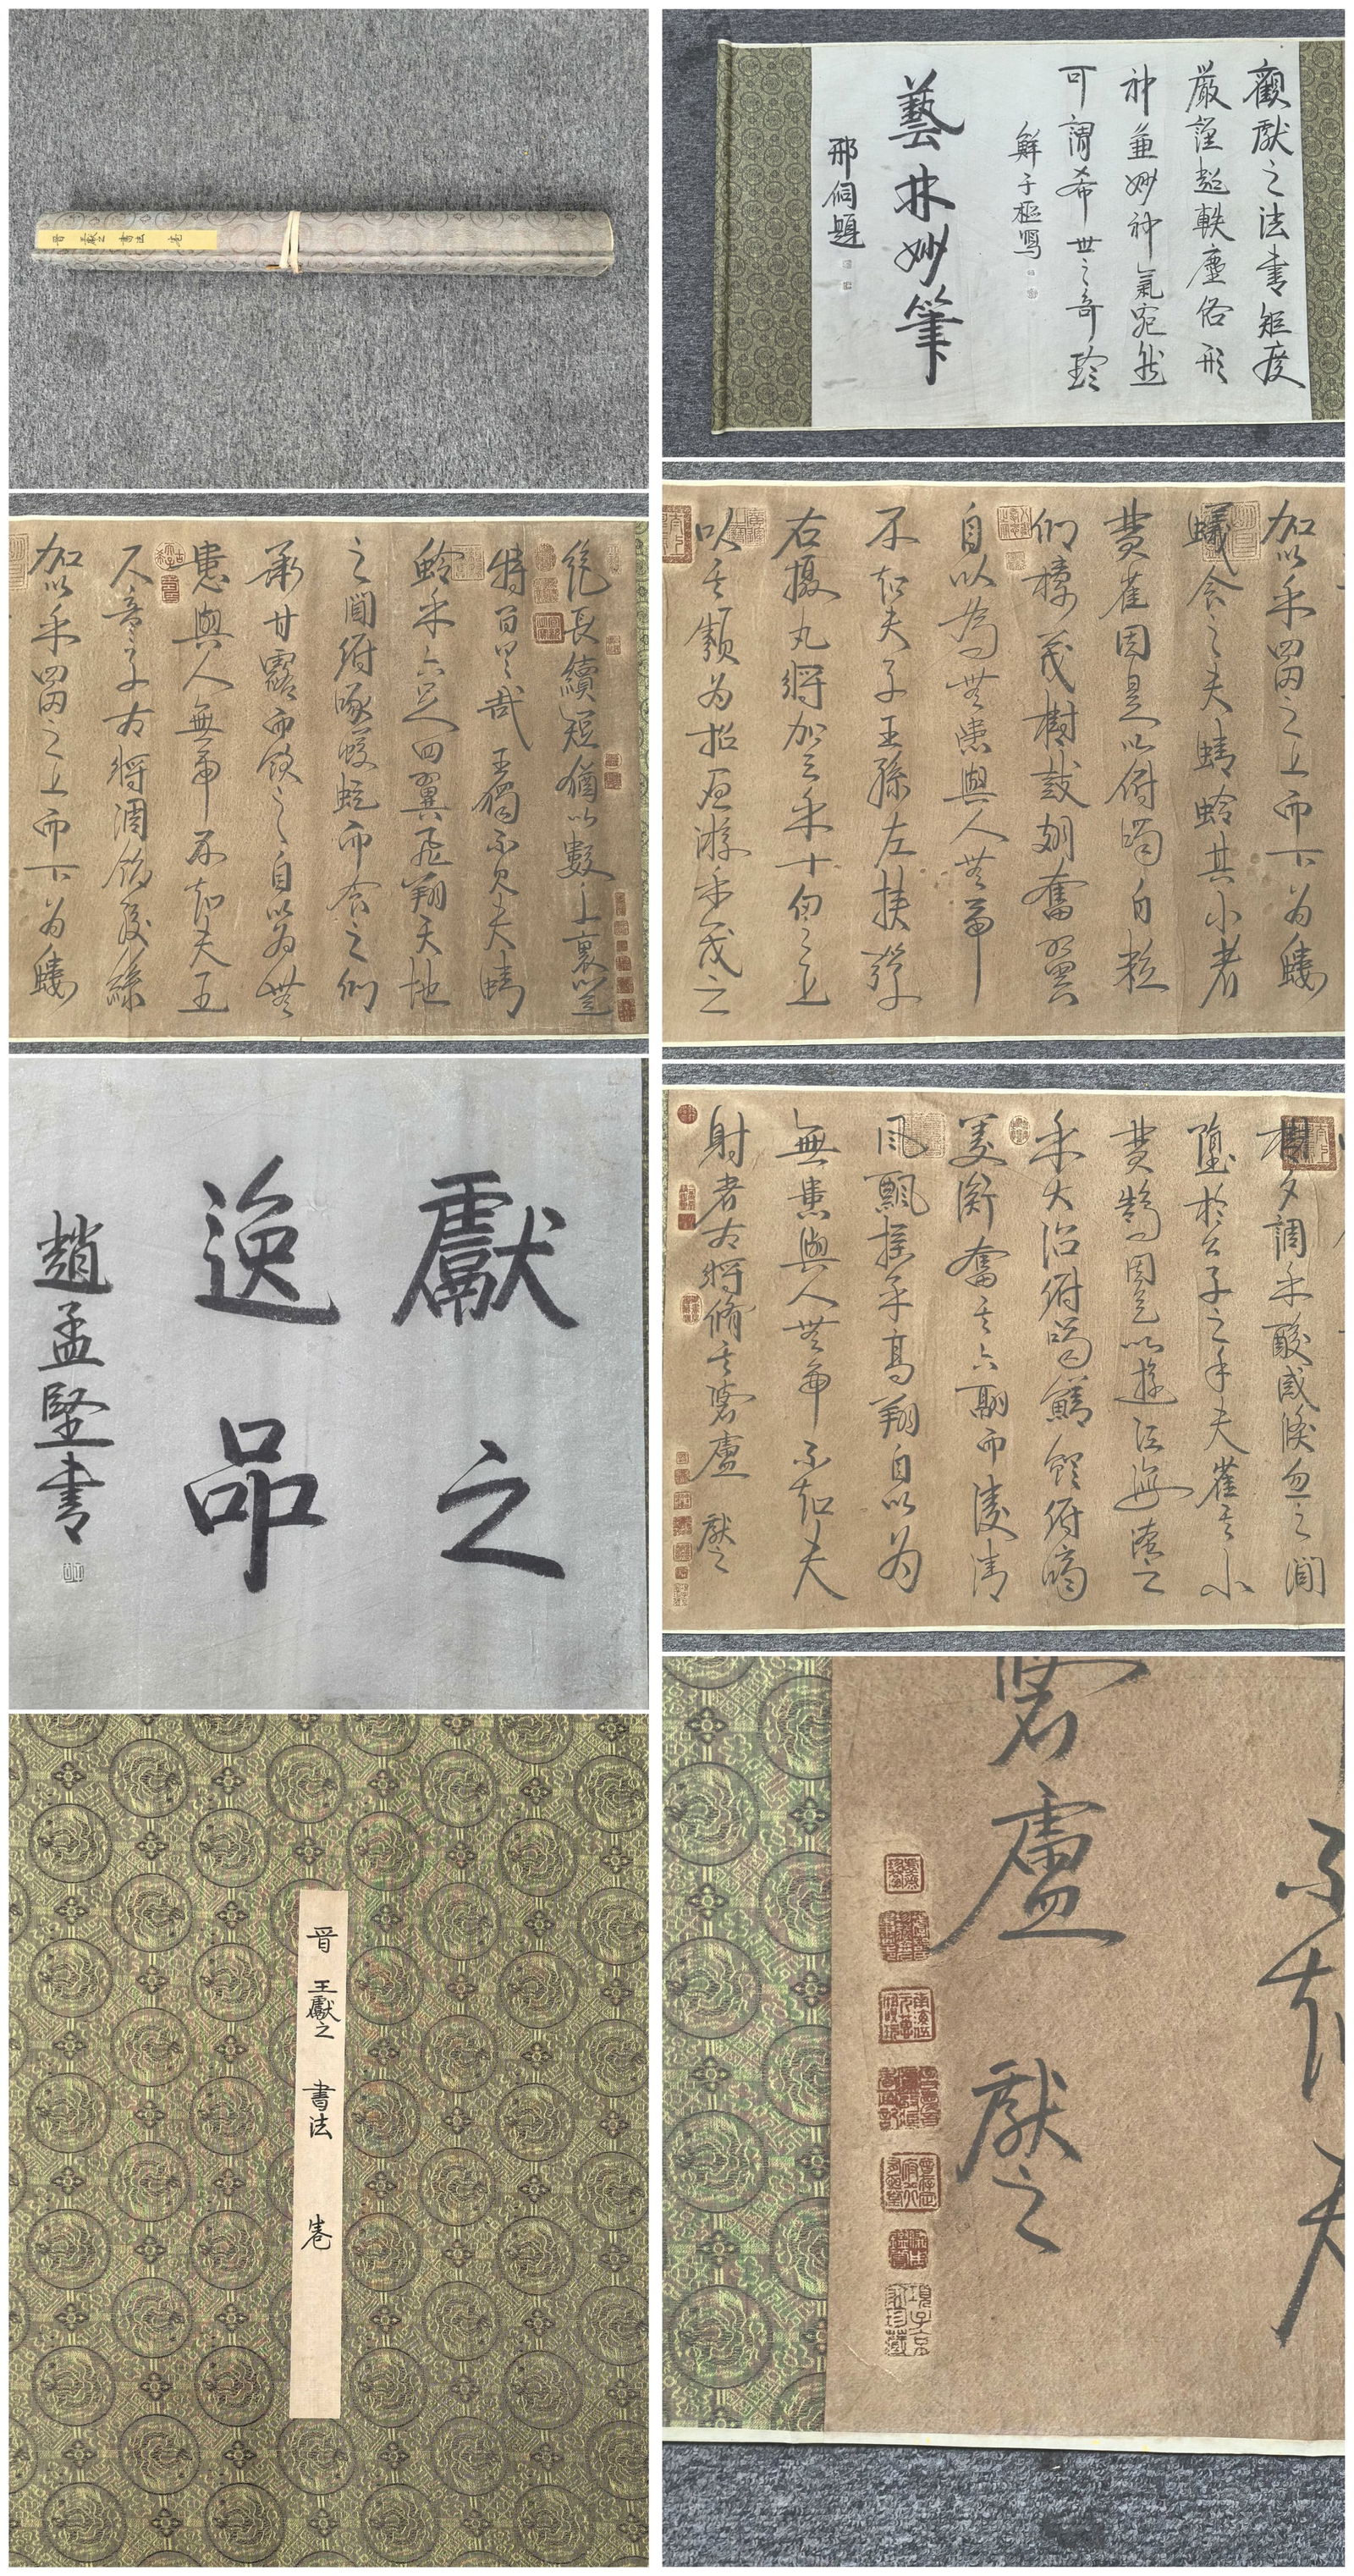 晉 獻之 書法 卷
觀獻之法書矩度
嚴謹超軼塵俗形
神並妙神氣宛然
可謂希世之奇珍
鮮于樞寫
藝林妙筆
邢侗題
絕長續短猶以數千里豈
特百里哉王獨不見夫蜻
蛉乎六足四翼飛翔天地
之間俯啄蚊虻而食之仰
承甘露而飲之自以為無
患與人無爭不知夫五
尺童子方將調飴膠絲
加以乎四之上而下為螻
加以乎四之上而下為螻
蟻食之夫蜻蛉其小者
黃雀因是以俯噣白粒
仰棲茂樹鼓翅奮翼
自以為無患與人無爭
不知夫子王孫左挾彈
右攝丸將加己乎十仞之上
以其類為招晝游乎茂之
獻之
逸品
趙孟堅書
樹夕調乎酸咸倏忽之間
墜於公子之手夫雀其小
黃鵠因是以遊江海淹之
乎大沼俯噣鱔鯉俯嚙
菱衡奮其六翮而淩清
風飄搖乎高翔自以為
無患與人無爭不知夫
射者方將脩其碆盧 獻之
晉 王獻之 書法 卷
不知夫
碆盧 獻之
項子京家珍藏